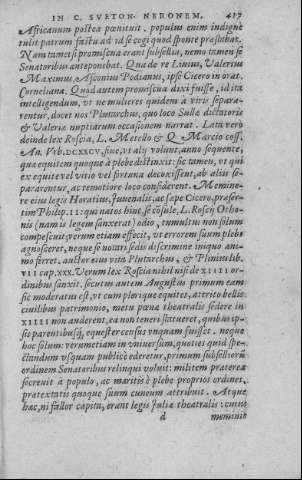 IN C. SVETON. NERONEM. 417
Africanum postea pœnituit, populus enim indigne
tulit patrum fastu ad id se cogi quod sponte præstabat.
Nam tametsi promiscua erant subsellia, nemo tamen se
Senatoribus anteponebat. Qua de re Liuius, Valerius
Maximus, Asconius Pedianus, ipse Cicero in orat.
Corneliana. Quod autem promiscua dixi fuisse, id ita
intelligendum, vt ne mulieres quidem à viris separa-
rentur, docet nos Plutarchus, quo loco Sullæ dictatoris
& Valeriæ nuptiarum occasionem narrat. Lata verò
deinde lex Roscia, L. Metello & Q. Marcio coss.
An. Vrb. DCXXCV, siue, vt alij volunt, anno sequente,
qua equitem quoque à plebe distinxit: sic tamen, vt qui
ex equite vel vitio vel fortuna decoxissent, ab aliis se-
pararentur, ac remotiore loco considerent. Memine-
re eius legis Horatius, Iuuenalis, ac sæpe Cicero, præser-
tim Philip. II: quo natos hinc, se cōsule, L. Roscij Otho-
nis (nam is legem sanxerat) odio, tumultus non solum
compescuit, verum etiam effecit, vt errorem suum plebs
agnosceret, neque se notari sedis discrimine iniquo ani-
mo ferret. auctor eius vitæ Plutarchus, & Plinius lib.
VII cap. XXX. Verum lex Roscia nihil nisi de XIIII or-
dinibus sanxit. secutus autem Augustus primum eam
sic moderatus est, vt cum plerique equites, attrito bellis
ciuilibus patrimonio, metu pœnæ theatralis sedere in
XIIII non auderent, ea non teneri statueret, quibus ip-
sis parentibusq́, equester census vnquam fuisset. neque
hoc solum: verumetiam in vniuersum, quoties quid spe-
ctandum vsquam publicè ederetur, primum subselliorū
ordinem Senatoribus relinqui voluit: militem prætereà
secreuit à populo, ac maritis è plebe proprios ordines,
prætextatis quoque suum cuneum attribuit. Atque
hæc, ni fallor capita, erant legis Iuliæ theatralis: cuius
d meminit